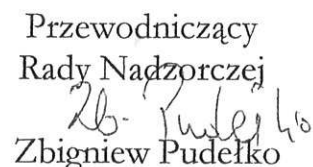 Przewodniczący
Rady Nadzorczej
Zb. Pudełko
Zbigniew Pudełko